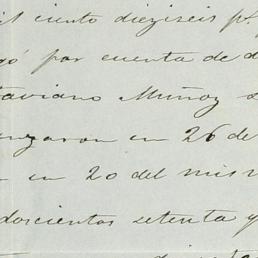 il ciento dieziseis p.
gó por cuenta de d
taviano Muñoz
nzaron en 26 de
en 20 del mis
doscientos setenta y